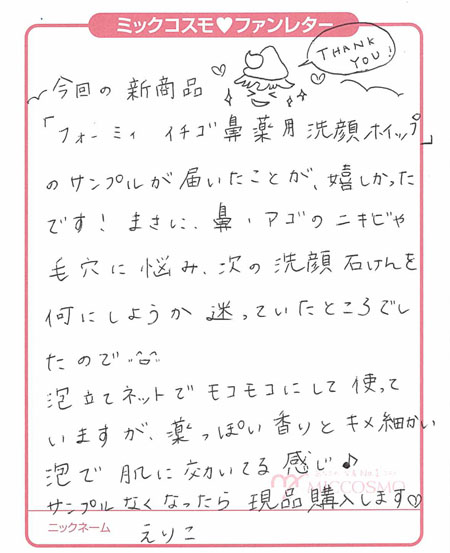 ミックコスモ♥ファンレター
THANK YOU!
今回の新商品
「フォーミィ イチゴ鼻薬用洗顔ホイップ」
のサンプルが届いたことが、嬉しかった
です! まさに、鼻・アゴのニキビや
毛穴に悩み、次の洗顔石けんを
何にしようか迷っていたところでし
たので
泡立てネットでモコモコにして使って
いますが、薬っぽい香りとキメ細かい
泡で肌に効いてる感じ♪
MICCOSMO
サンプルなくなったら現品購入します♡
ニックネーム
えりこ